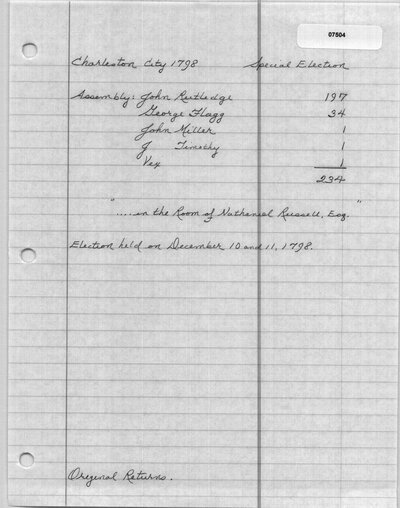 07504
Charleston City 1798 Special Election
Assembly: John Rutledge 197
George Flagg 34
John Miller 1
J Timothy 1
Vex 1
234
"....in the Room of Nathaniel Russell, Esq."
Election held on December 10 and 11, 1798.
Original Returns.